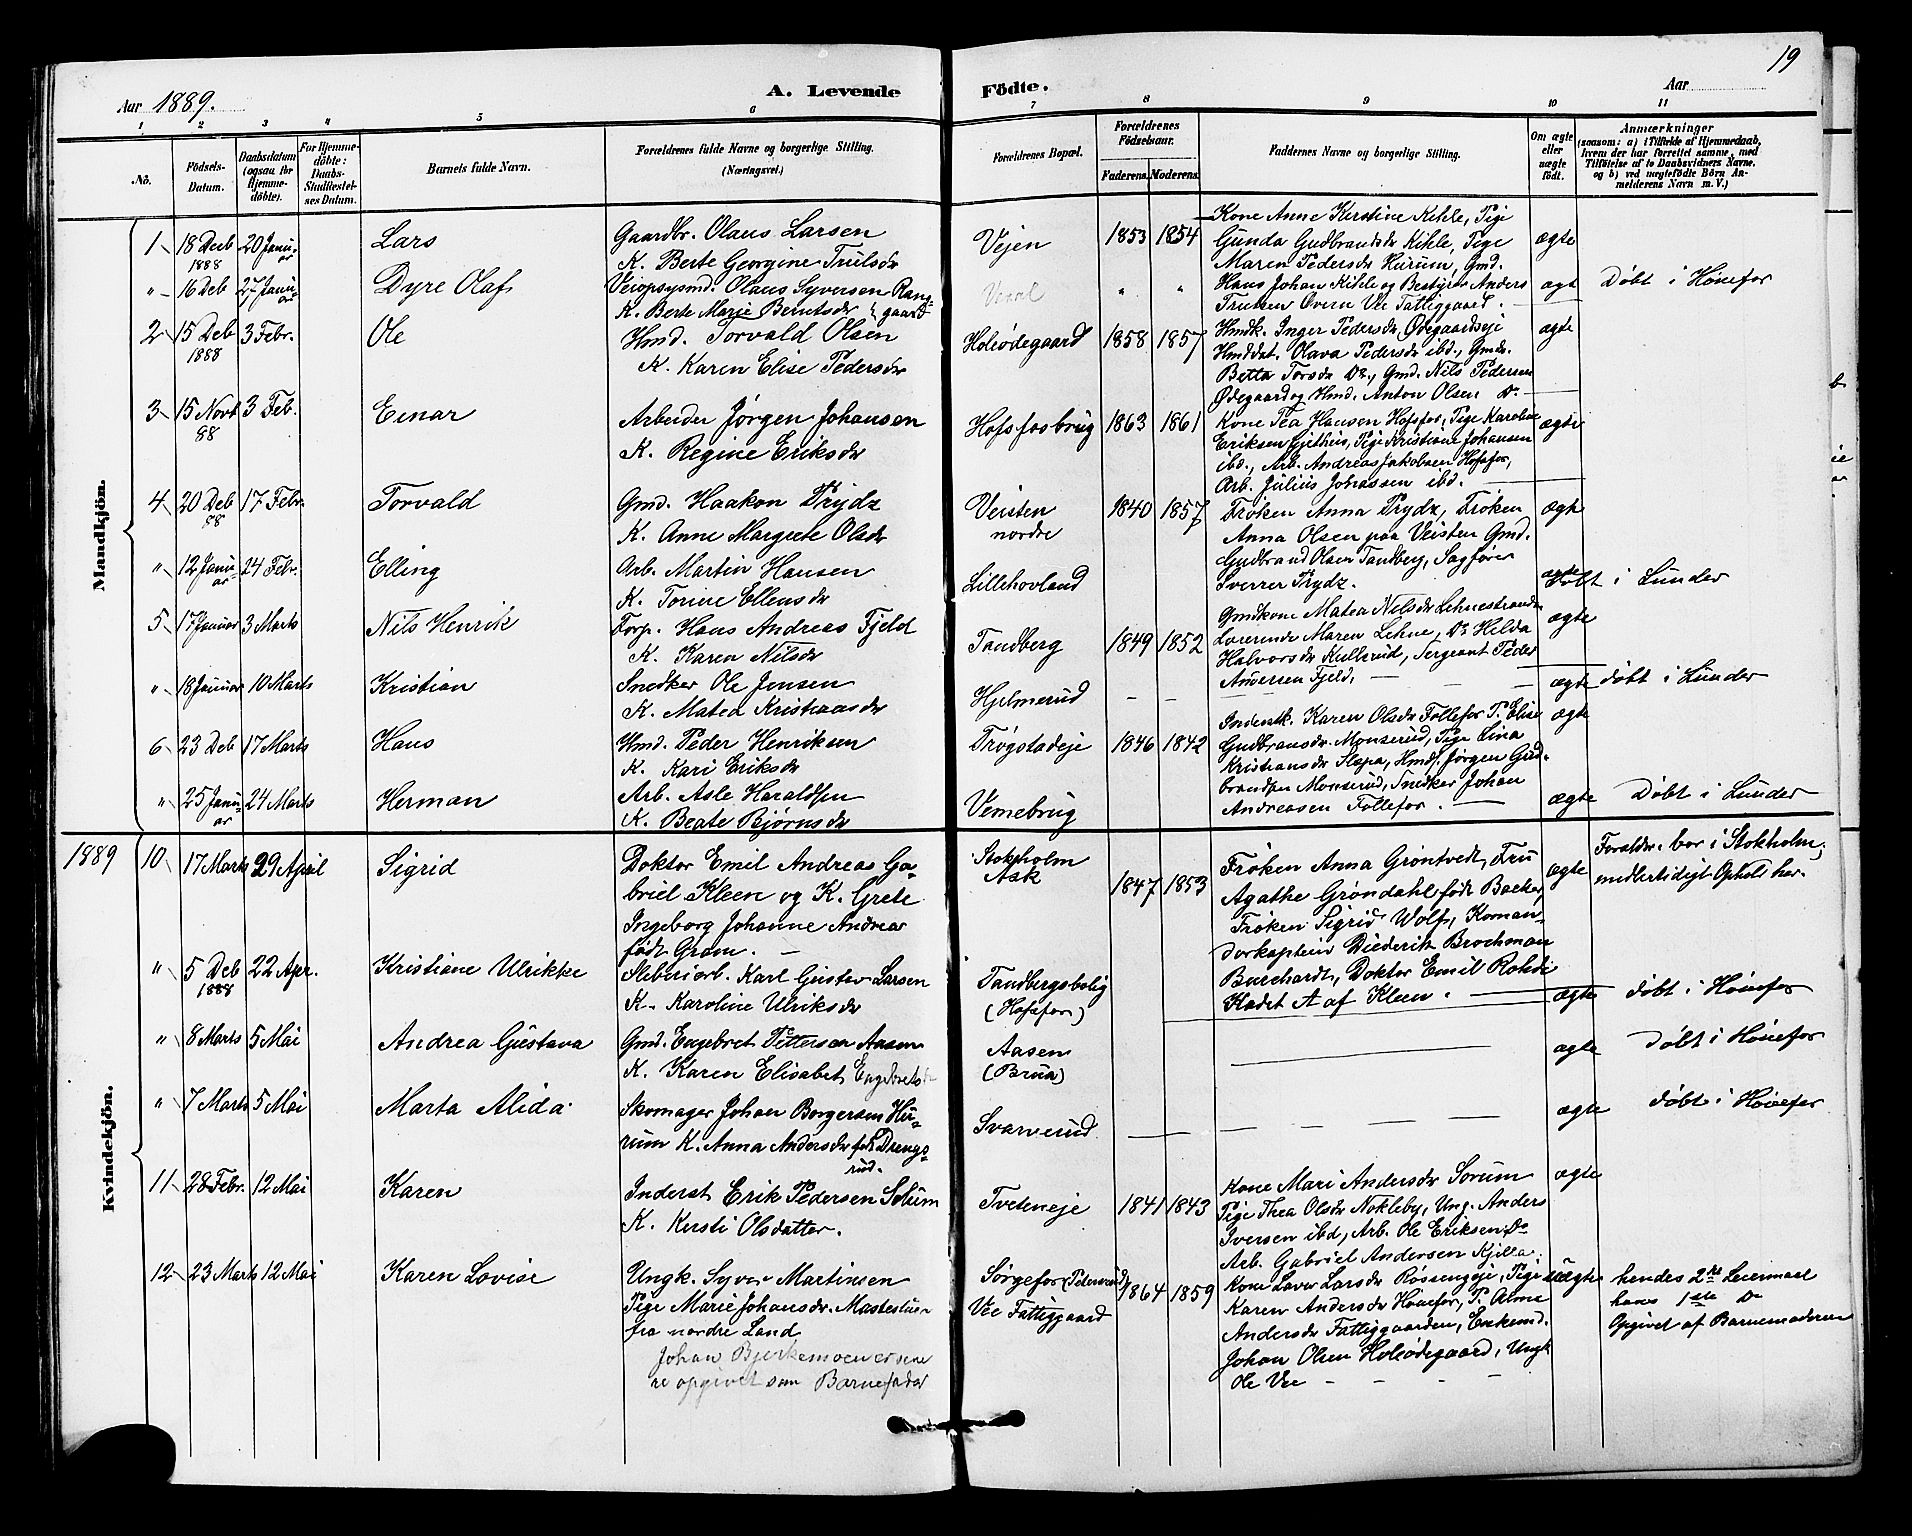 19
Aar 1889.
A. Levende Födte.
Aar
1 2 3 4 5 6 7 8 9 10 11
No.
Födsels-Datum.
Daabsdatum (ogsaa for Hjemmedöbte).
For Hjemmedöbte: Daabs-Stadfæstelses Datum.
Barnets fulde Navn.
Forældrenes fulde Navne og borgerlige Stilling. (Næringsvei.)
Forældrenes Bopæl.
Forældrenes Födselsaar.
Faderens. Moderens.
Faddernes Navne og borgerlige Stilling.
Om ægte eller uægte födt.
Anmærkninger (saasom: a) i Tilfælde af Hjemmedaab, hvem der har forrettet samme, med Tilföielse af to Daabsvidners Navne, og b) ved uægtefödte Börn Anmelderens Navn m. V.)
Mandkjön.
1 18 Decb 1888 20 Januar Lars
Gaardbr. Olaus Larsen
K. Berte Georgine Trulsdr
Vejen 1853 1854
Kone Anne Kirstine Kihle, Pige
Gunda Gudbrandsdr Kihle, Pige
Maren Pedersdr Hurum, Gmd.
Hans Johan Kihle og Bestyrer Anders
Trulsen Overn Vee Fattiggaard.
ægte
" 16 Deb 27 Januar Dyre Olaf
Veiopsynsmd. Olaus Syversen Ranggaard
K. Berte Marie Berntsdr
" " ægt Døbt i Hønefos
2 15 Deb 1888 3 Febr. Ole
Hmd. Torvald Olsen
K. Karen Elise Pedersdr
Holeødegaard 1858 1857
Hmdk. Inger Pedersdr, Ødegaardseje
Hmddat. Olava Pedersdr ibd., Gmdr.
Betta Torsdr Do., Gmd. Nils Pedersen
Ødegaard og Hmd. Anton Olsen Do.
ægte
3 15 Novb 88 3 Feb. Einar
Arbeider Jørgen Johansen
K. Regine Eriksdr
Hofsfosbrug 1863 1861
Kone Tea Hansen Hofsfos, Pige Karoline
Eriksen Gjetheis, Pige Kristiane Johansen
ibd., Arb. Andreas Jakobsen Hofsfos,
Arb. Julius Johassen ibd.
ægte
4 20 Deb 88 17 Febr. Torvald
Gmd. Haakon Prydz
K. Anne Margrete Olsdr
Veisten nordre 1840 1857
Frøken Anna Prydz, Frøken
Anna Olsen paa Veisten Gmd.
Gudbrand Olsen Tandberg, Sagfører
Sverrer Prydz.
ægte
" 12 Januar 24 Febr. Elling
Arb. Martin Hansen
K. Torine Ellensdr
Lillehovland
ægte Døbt i Lunder
5 17 Januar 3 Marts Nils Henrik
Forp. Hans Andreas Fjeld
K. Karen Nilsdr
Tandberg 1849 1852
Gmdkone Matea Nilsdr Lehnestranden
Lærerinde Maren Lehne, Do Helda
Halvorsdr Kullerud, Sergeant Peder
Andersen Fjeld.
ægte
" 18 Januar 10 Marts Kristian
Snedker Ole Jensen
K. Matea Kristiansdr
Hjelmerud – –
ægte døbt i Lunder
6 23 Deb 17 Marts Hans
Hmd. Peder Henriksen
K. Kari Eriksdr
Trøgstadeje 1846 1842
Inderstk. Karen Olsdr Follefos P. Elise
Gudbransdr. Monserud, Pige Lina
Kristiansdr Flaspa, Hmds. Jørgen Gudbrandsen Monserud, Snedker Johan
Andreasen Follefos.
ægte
" 25 Januar 24 Marts Herman
Arb. Asle Haraldsen
K. Beate Bjørnsdr
Vemebrug
ægte Døbt i Lunder
Kvindekjön.
1889 10 17 Marts 29 April Sigrid
Doktor Emil Andreas Gabriel Kleen og K. Grete
Ingeborg Johanne Andrea
født Gram.
Stokholm Ask 1847 1853
Frøken Anna Grøntvedt, Fru
Agathe Grøndahl født Backer,
Frøken Sigrid Wolf, Komandørkaptein Diederik Brochman
Burchardt, Doktor Emil Rohde
Kadet A af Kleen.
ægte
Foraldr. bor i Stokholm;
midlertidigt Ophold her.
" 5 Deb 1888 22 Apr. Kristiane Ulrikke
Sliberiarb. Karl Gustav Larsen
K. Karoline Ulriksdr
Tandbergsbolig (Hofsfos)
ægte døbt i Hønefos
" 8 Marts 5 Mai Andrea Gustava
Gmd. Engebret Pettersen Aasen
K. Karen Elisabet Engebretsdr
Aasen (Brua)
ægte Døbt i Hønefos
" 7 Marts 5 Mai Marta Alida
Skomager Johan Borgersen Hurum K. Anna Andersdr fød Drengsrud.
Svarverud
ægte døbt i Hønefos
11 28 Febr. 12 Mai Karen
Inderst Erik Pedersen Solum
K. Kersti Olsdatter.
Tveteneje 1841 1843
Kone Mari Andersdr Sorum
Pige Thea Olsdr Nokleby, Ung. Anders
Iversen ibd, Arb. Ole Eriksen Do
Arb. Gabriel Andersen Kjilla.
ægte
12 23 Marts 12 Mai Karen Lovise
Ungk. Syver Martinsen
Pige Marie Johansdr. Mastestuen
fra nordre Land
Johan Bjerkemoen er senere opgivet som Barnefader
Sørgefos (Pederud)
Vee Fattiggaard
1864 1859
Kone Laver Larsdr Røssengeje, Pige
Karen Andersdr Hønefos, P. Alma
Andersdr Fattiggaarden, Enkemd.
Johan Olsen Holeødegaard, Ungk
Ole Vee
uægte
hendes 2det Leiermaal
hans 1ste Do
Opgivet af Barnemoderen